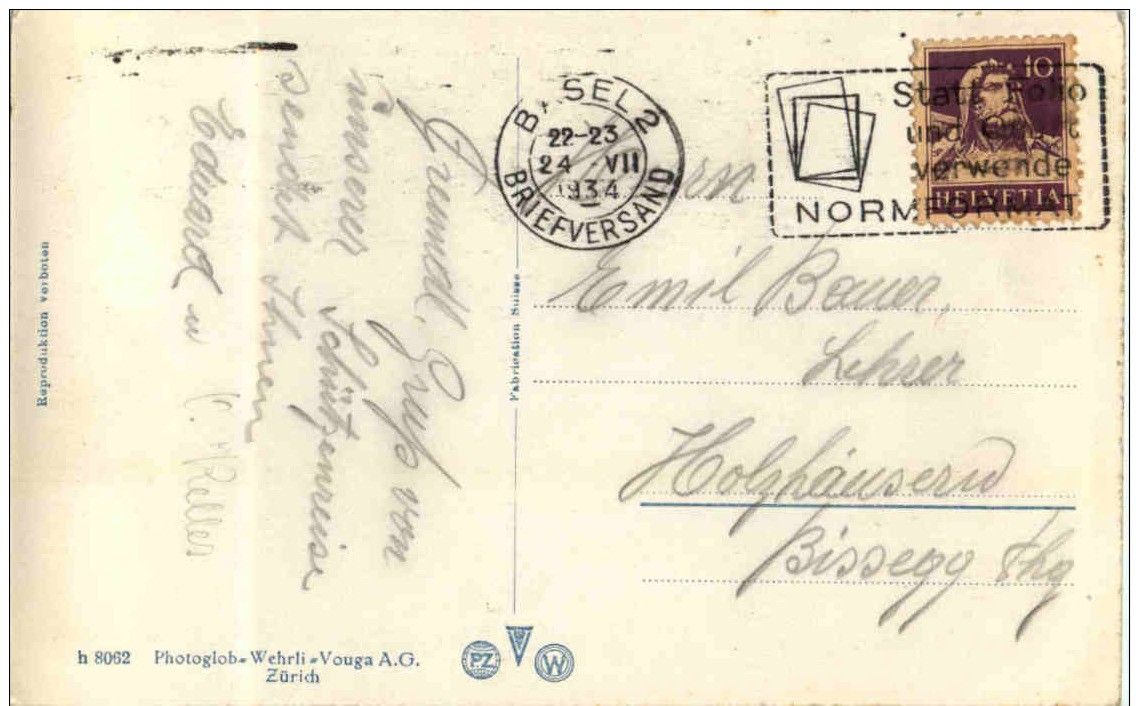 Freundl. Gruß von
unserer Schützenreise
sendet Ihnen
Eduard u
Keller
BASEL 2
22-23
24 VII
1934
BRIEFVERSAND
Statt Folio
und
verwende
NORMFORMAT
10
HELVETIA
Herrn
Emil Bauer,
Lehrer
Holzhäusern
Bissegg Thg
Reproduktion verboten
Fabrication Suisse
h 8062 Photoglob-Wehrli-Vouga A.G.
Zürich
PZ
V
W